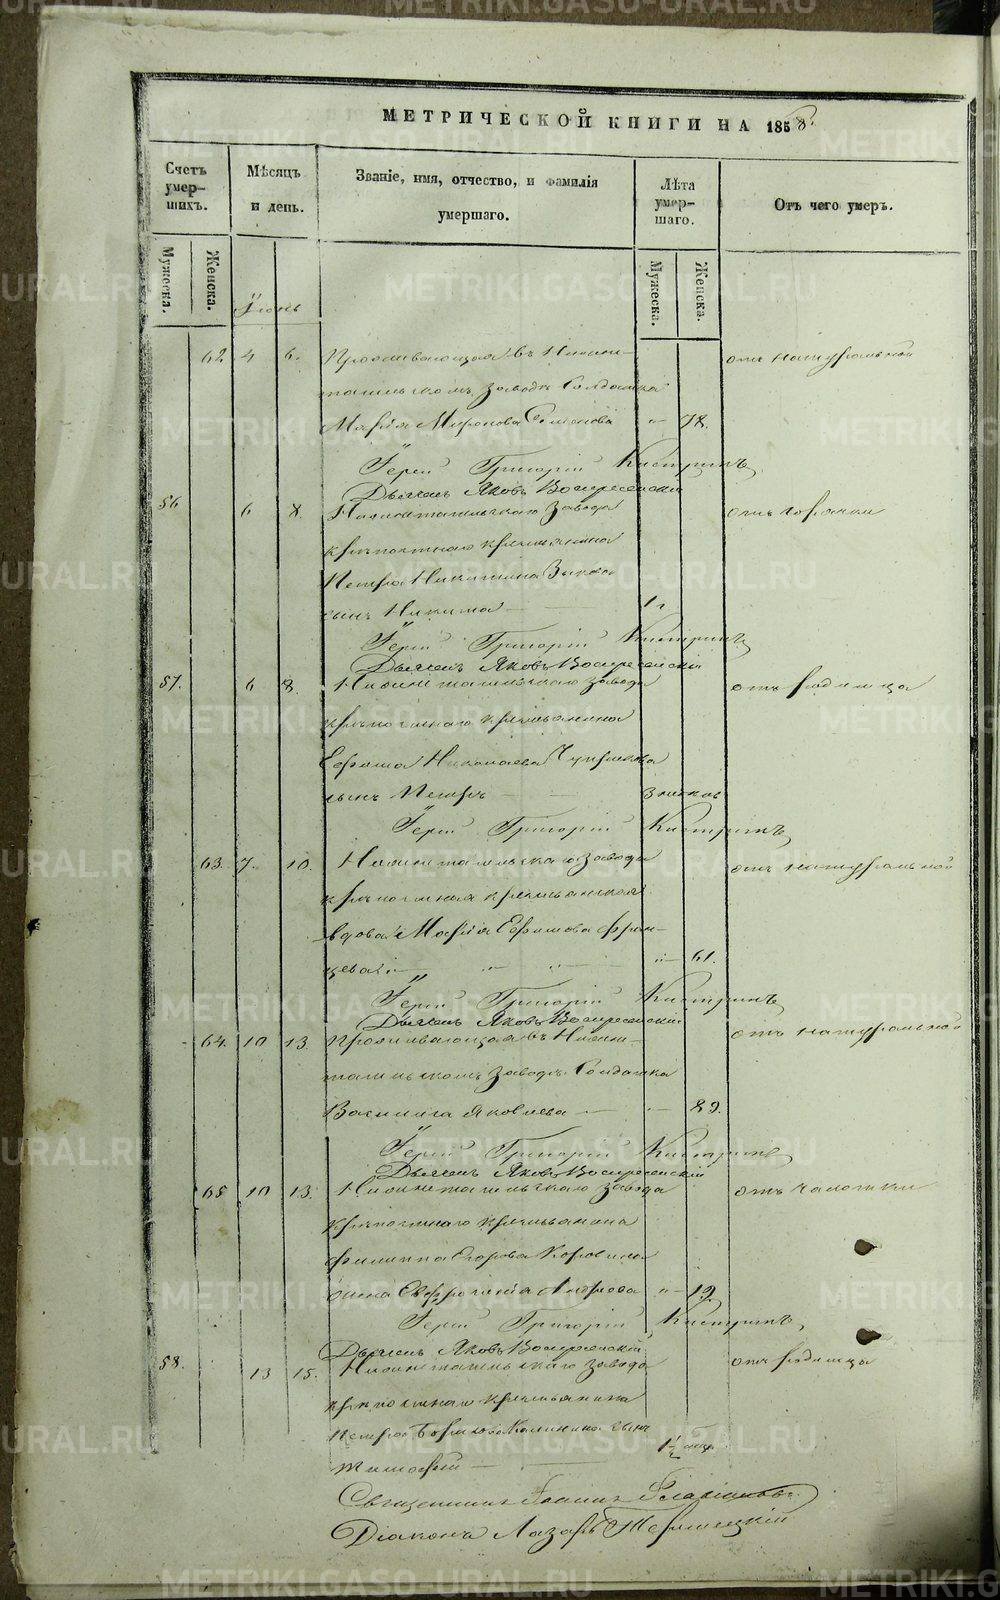 МЕТРИЧЕСКОЙ КНИГИ НА 1858.
Счетъ умер-шихъ.
Мѣсяцъ и день.
Званіе, имя, отчество, и фамилія умершаго.
Лѣта умер-шаго.
Отъ чего умеръ.
Мужеска.
Женска.
Мужеска.
Женска.
Іюнь
62 4 6. Проживающая въ Нижне- отъ натуральной
тагильскомъ заводѣ Солдатка
Марія Миронова 78.
Іерей Григорій
Дьячекъ Яковъ Воскресенскій
56 6 8. Нижнетагильскаго завода отъ горячки
крѣпостнаго крестьянина
Петра Никитина Быкова
сынъ Никита 1 г
Іерей Григорій
Дьячекъ Яковъ Воскресенскій
57. 6 8. Нижнетагильскаго завода отъ родимца
крѣпостнаго крестьянина
Ефима Николаева
сынъ Петръ
Іерей Григорій
63. 7. 10. Нижнетагильскаго завода отъ натуральной
крѣпостная крестьянская
вдова Марія Ефимова
61.
Іерей Григорій
Дьячекъ Яковъ Воскресенскій
64. 10 13. Проживающая въ Нижне- отъ натуральной
тагильскомъ заводѣ Солдатка
Василиса Яковлева 89.
Іерей Григорій
Дьячекъ Яковъ Воскресенскій
65 10 13. Нижнетагильскаго завода отъ чахотки
крѣпостнаго крестьянина
Филиппа Егорова Коровина
жена Евфросинія Андреева 19.
Іерей Григорій
Дьячекъ Яковъ Воскресенскій
58. 13 15. Нижнетагильскаго завода отъ родимца
крѣпостнаго крестьянина
Петра Борисова Калинина сынъ
Тимофей 1½ мѣс.
Священникъ Іоаннъ
Діаконъ Лазарь
METRIKI.GASO-URAL.RU